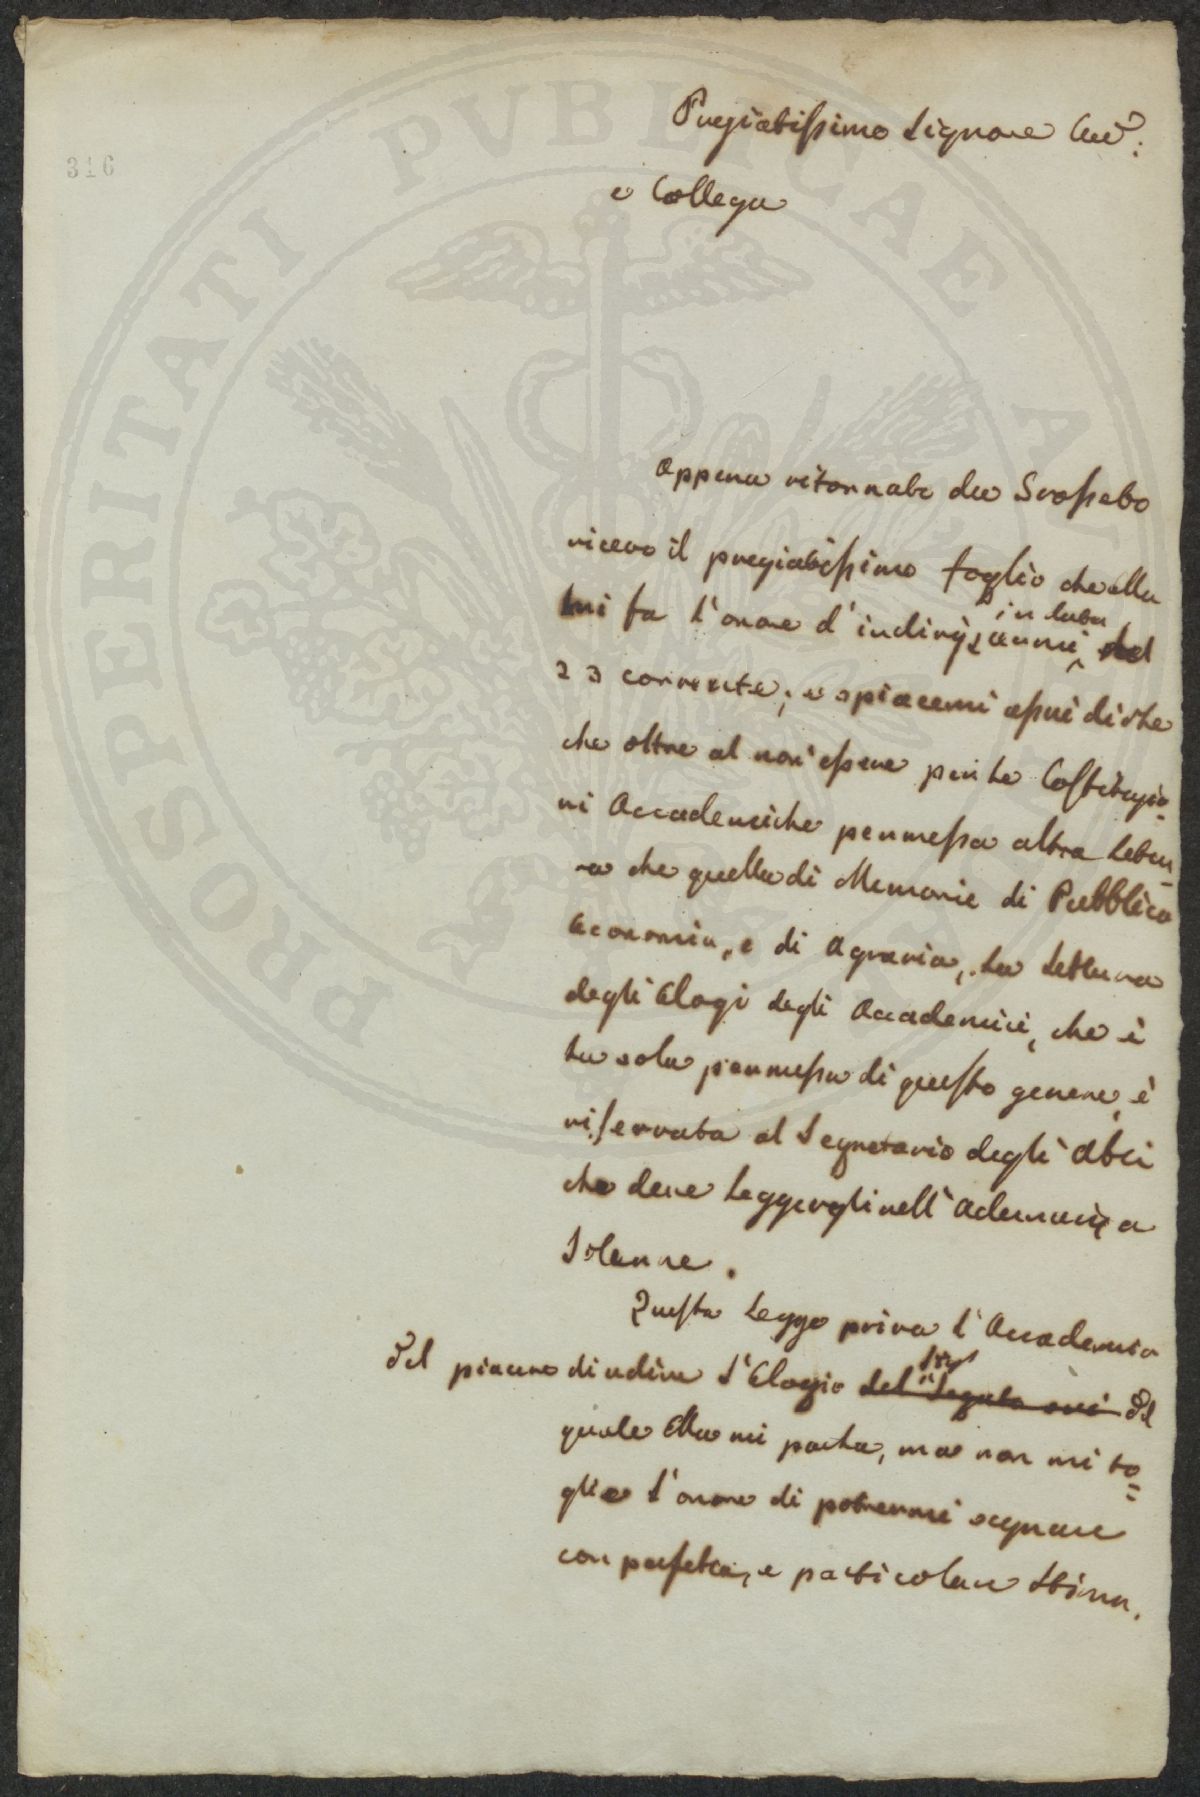 316
PROSPERITATI PUBLICAE AU
Pregiatissimo Signore
e Collega
Appena ritornato da
ricevo il pregiatissimo foglio che ella
mi fa l'onore d'indirizzarmi in data del
23 corrente; e spiacemi assai di che
che oltre al non essere per le Costituzio-
ni Accademiche permessa altra Letu-
ra che quella di Memorie di Pubblica
Economia, e di Agraria, La Lettura
degli Elogi degli Accademici, che è
la sola permessa di questo genere, è
riservata al Segretario degli Atti
che deve leggergli nell'Adunanza
Solenne.
Questa Legge priva l'Accademia
del piacere di udire l'Elogio del del
quale Ella mi parla, ma non mi to=
glie l'onore di potermi segnare
con perfetta, e particolare Stima.